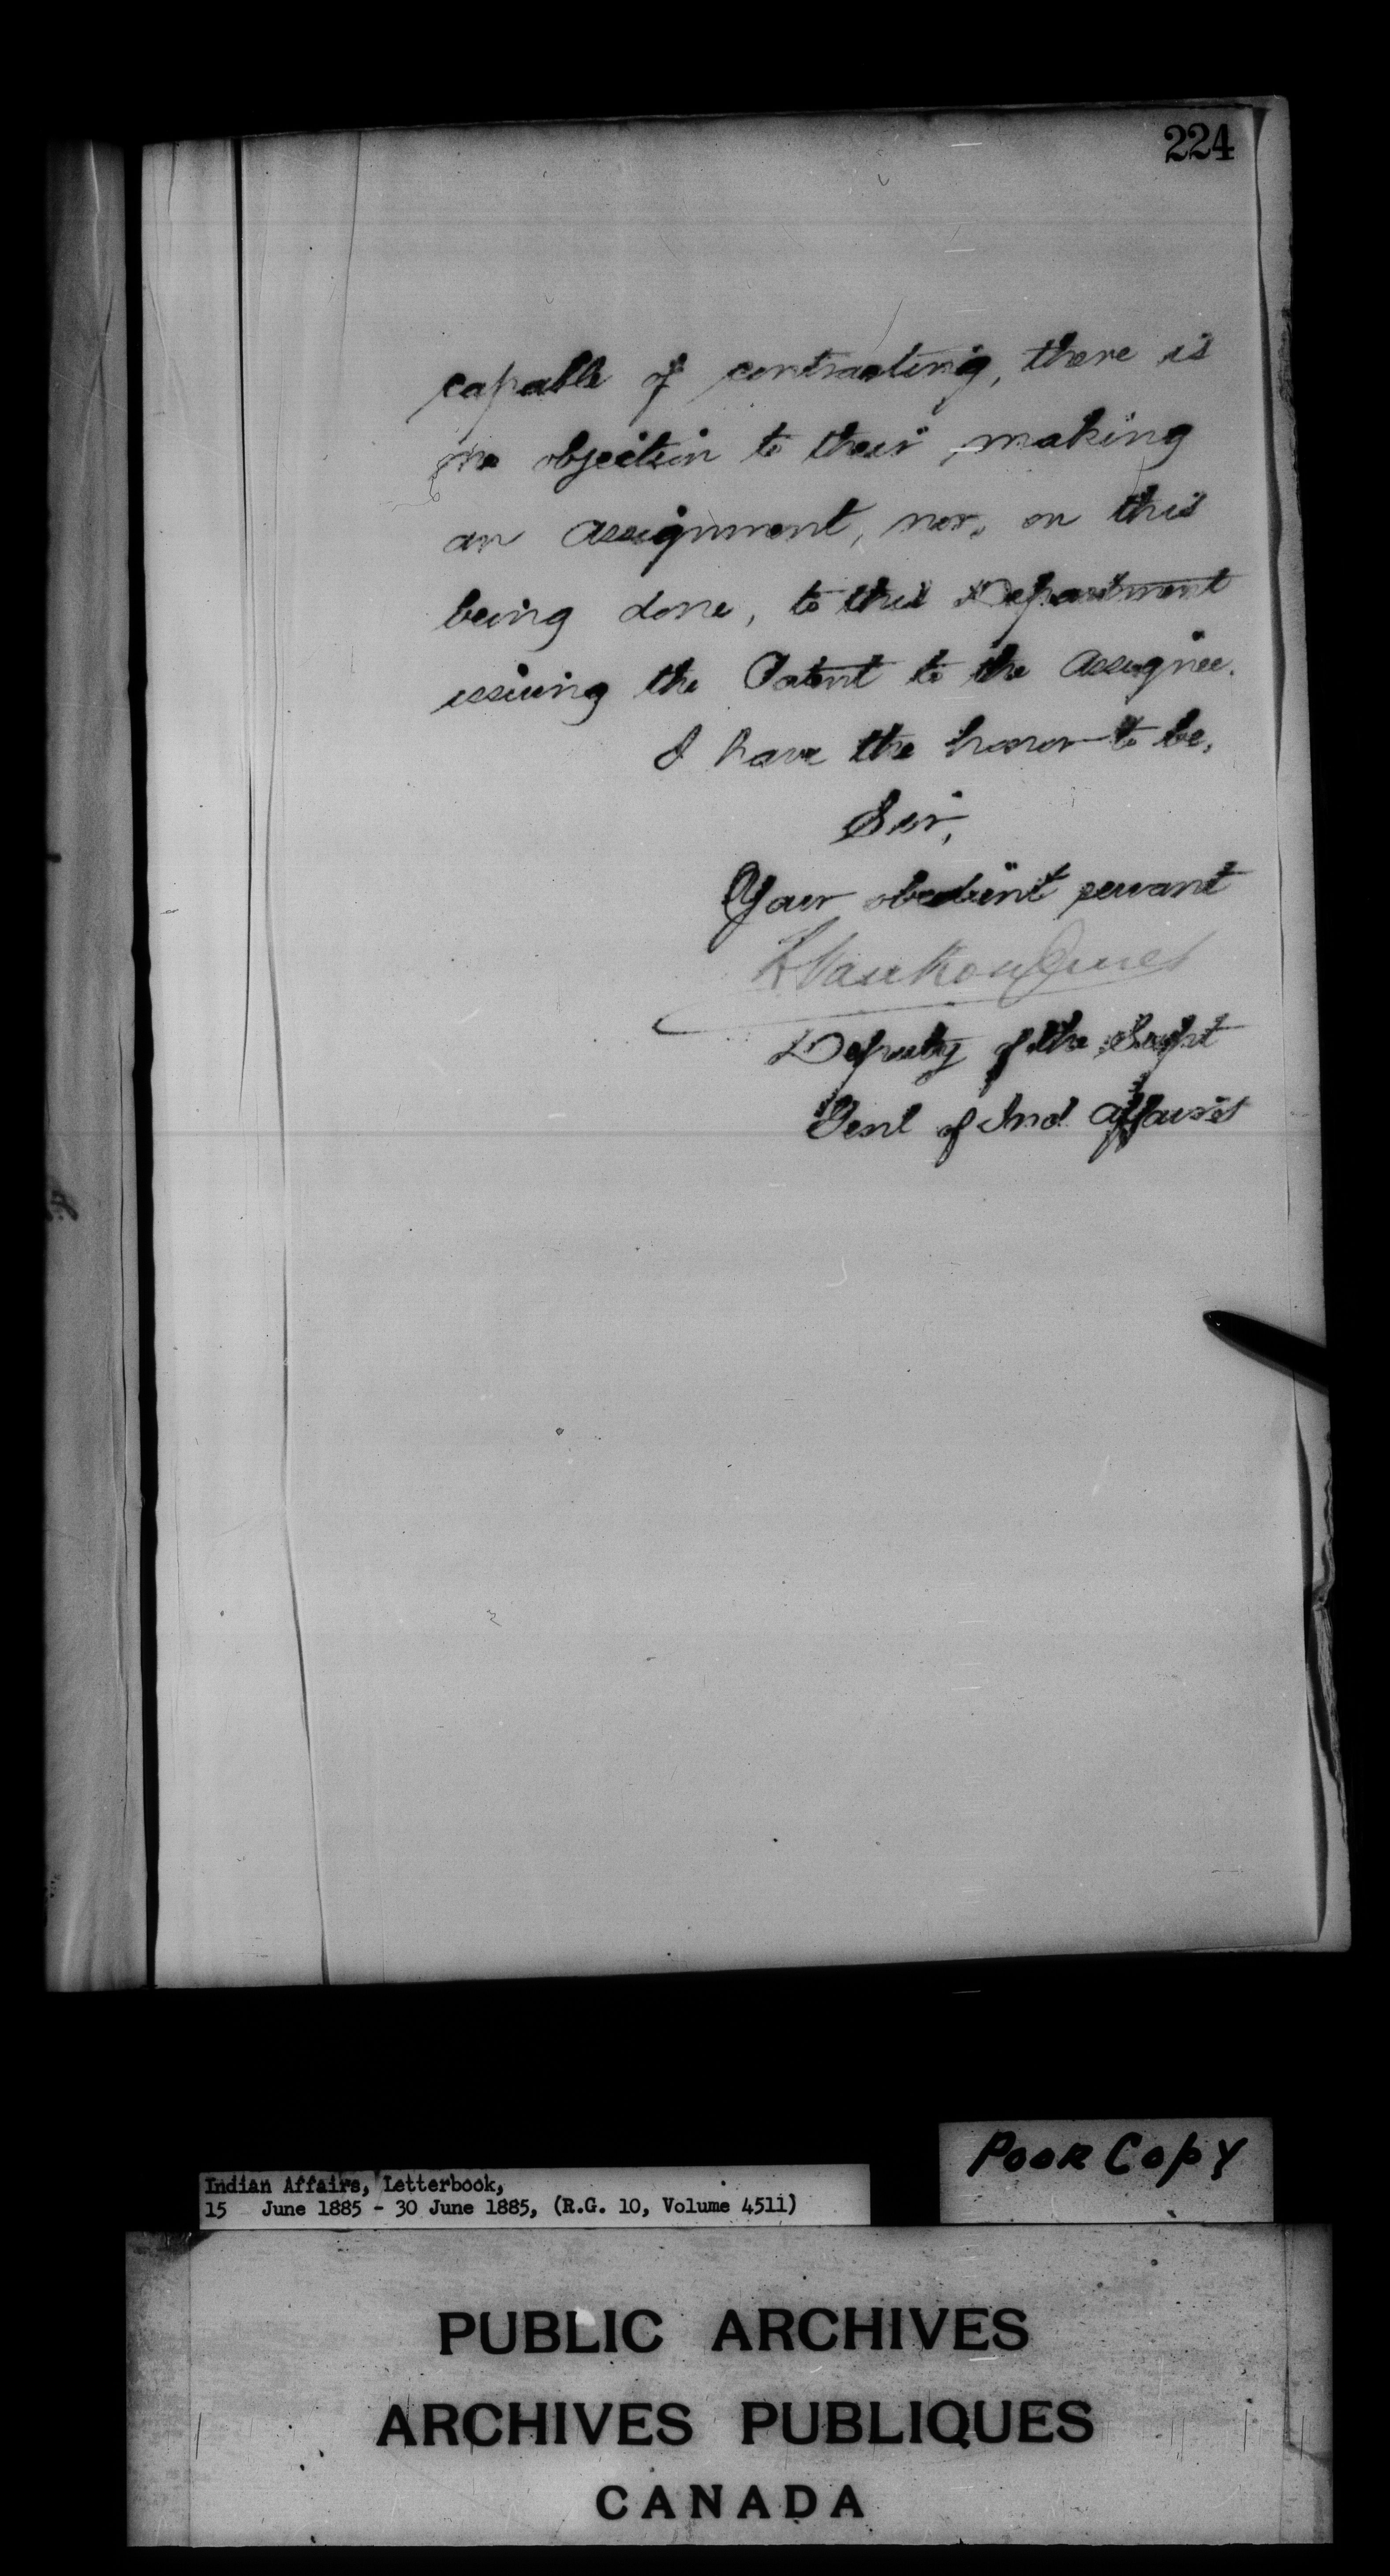 224
capable of contracting, there is
no objection to their making
an assignment, nor, on this
being done, to this Department
issuing the Patent to the assignee.
I have the honor to be,
Sir,
Your obedient servant
L Vankoughnet
Deputy of the Supt
Genl of Ind Affairs
POOR COPY
Indian Affairs, Letterbook,
15 June 1885 - 30 June 1885, (R.G. 10, Volume 4511)
PUBLIC ARCHIVES
ARCHIVES PUBLIQUES
CANADA